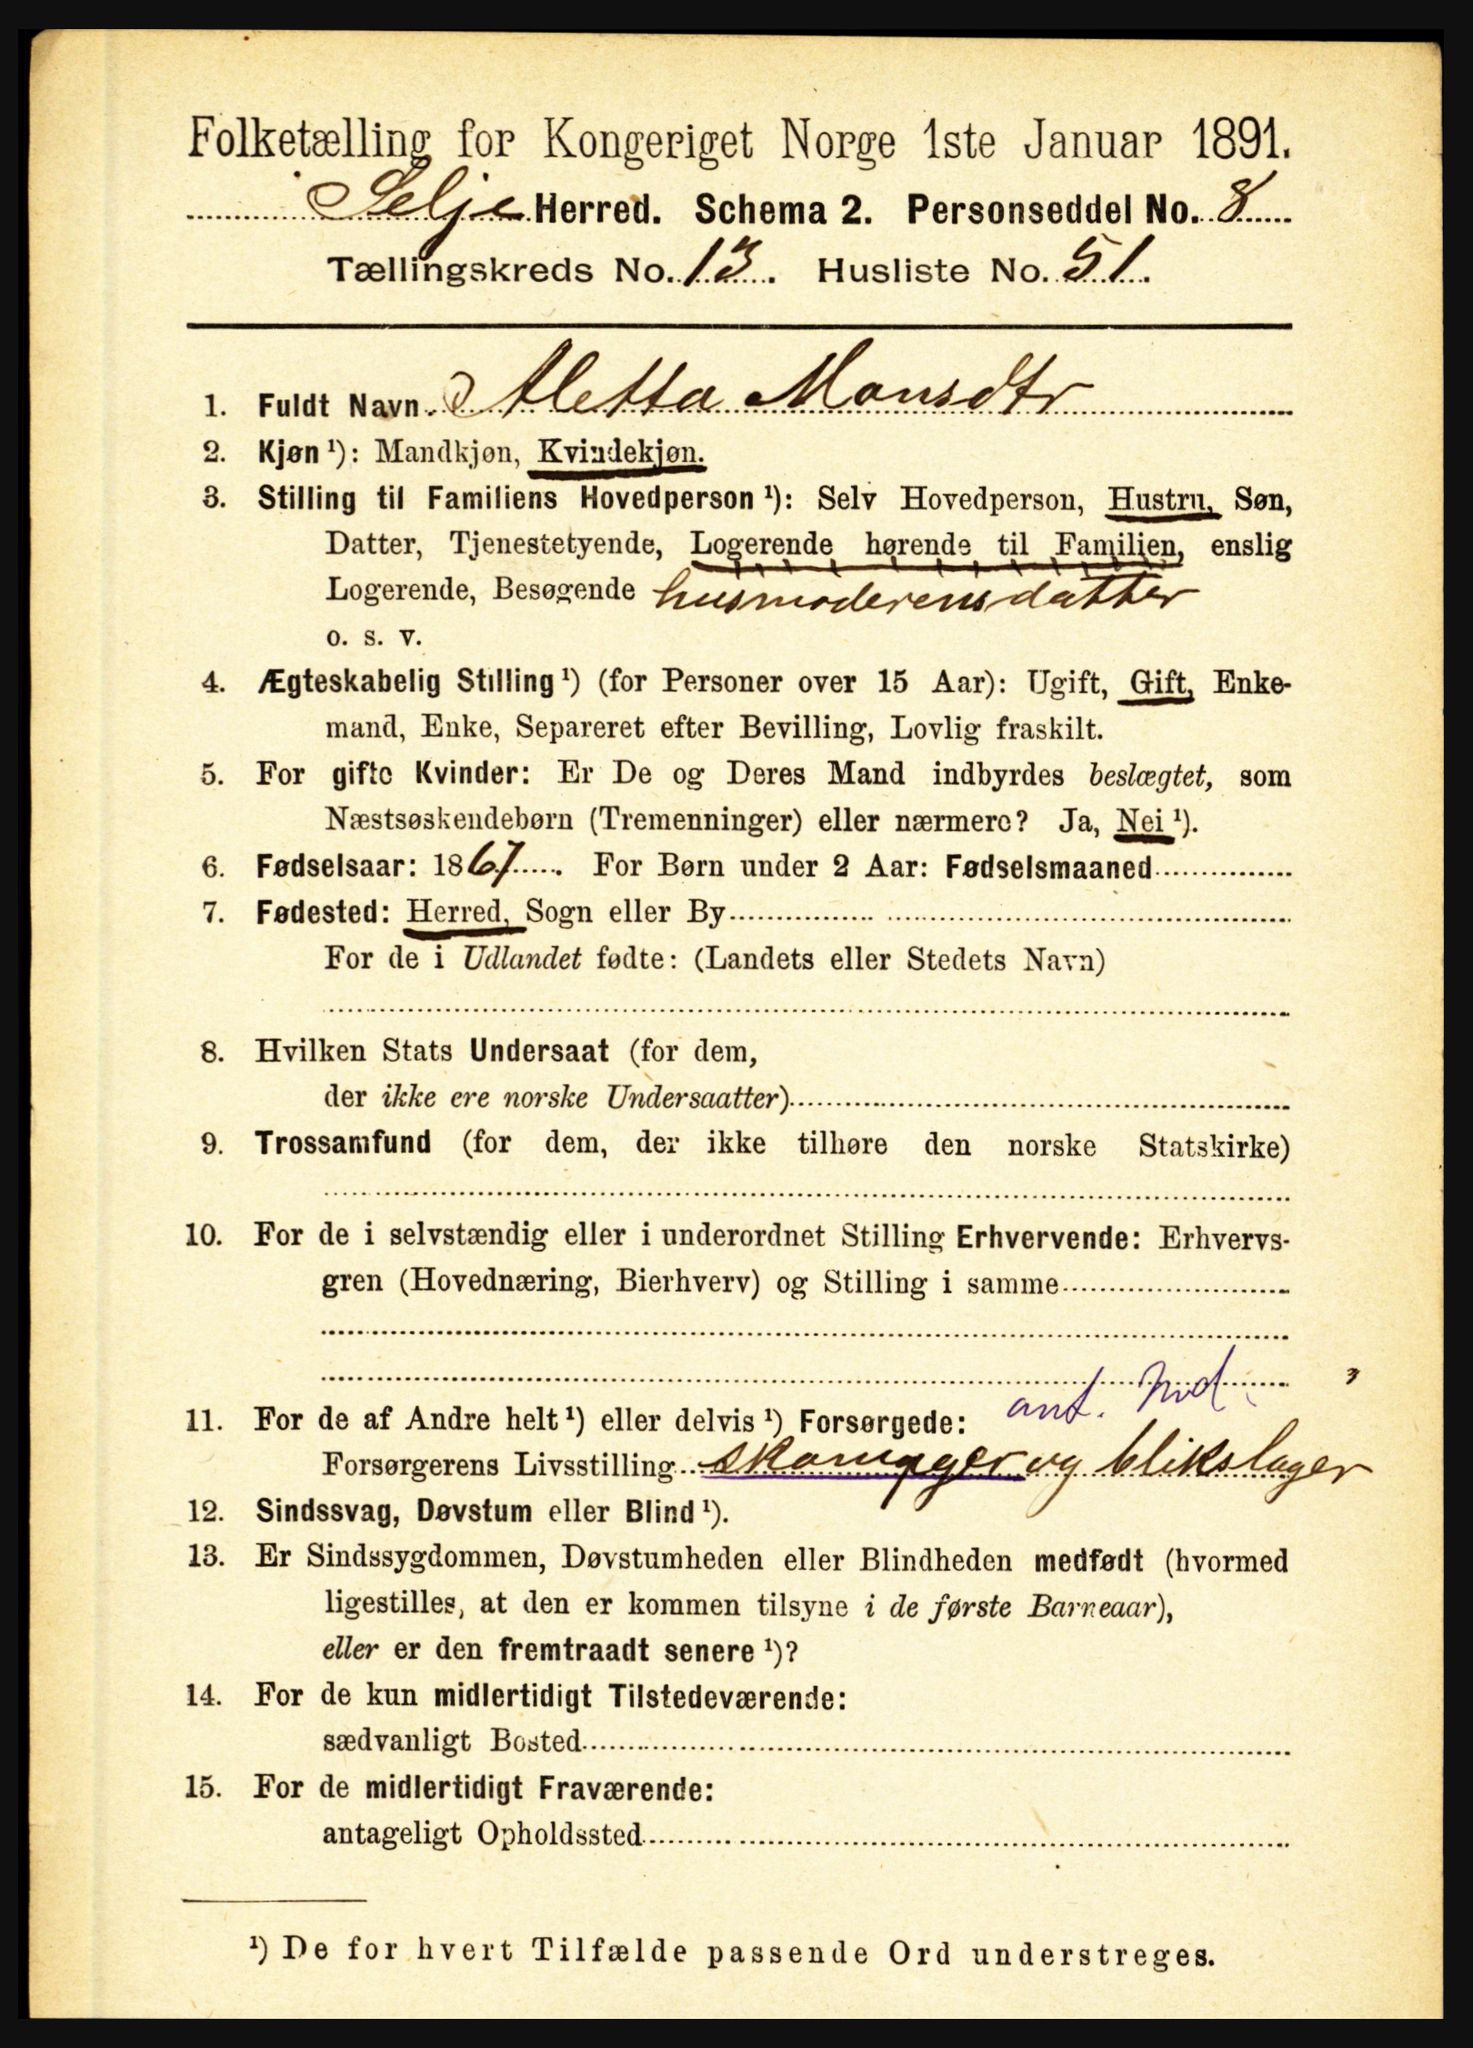 Folketælling for Kongeriget Norge 1ste Januar 1891.
Selje Herred. Schema 2. Personseddel No. 8
Tællingskreds No. 13. Husliste No. 51.
1. Fuldt Navn. Aletta Monsdtr
2. Kjøn ¹): Mandkjøn, Kvindekjøn.
3. Stilling til Familiens Hovedperson ¹): Selv Hovedperson, Hustru, Søn,
Datter, Tjenestetyende, Logerende hørende til Familien, enslig
Logerende, Besøgende husmoderens datter
o. s. v.
4. Ægteskabelig Stilling ¹) (for Personer over 15 Aar): Ugift, Gift, Enke-
mand, Enke, Separeret efter Bevilling, Lovlig fraskilt.
5. For gifte Kvinder: Er De og Deres Mand indbyrdes beslægtet, som
Næstsøskendebørn (Tremenninger) eller nærmere? Ja, Nei ¹).
6. Fødselsaar: 1867. For Børn under 2 Aar: Fødselsmaaned
7. Fødested: Herred, Sogn eller By
For de i Udlandet fødte: (Landets eller Stedets Navn)
8. Hvilken Stats Undersaat (for dem,
der ikke ere norske Undersaatter)
9. Trossamfund (for dem, der ikke tilhøre den norske Statskirke)
10. For de i selvstændig eller i underordnet Stilling Erhvervende: Erhvervs-
gren (Hovednæring, Bierhverv) og Stilling i samme
ant. Md.
11. For de af Andre helt ¹) eller delvis ¹) Forsørgede:
Forsørgerens Livsstilling skomager og blikslager
12. Sindssvag, Døvstum eller Blind ¹).
13. Er Sindssygdommen, Døvstumheden eller Blindheden medfødt (hvormed
ligestilles, at den er kommen tilsyne i de første Barneaar),
eller er den fremtraadt senere ¹)?
14. For de kun midlertidigt Tilstedeværende:
sædvanligt Bosted
15. For de midlertidigt Fraværende:
antageligt Opholdssted
¹) De for hvert Tilfælde passende Ord understreges.